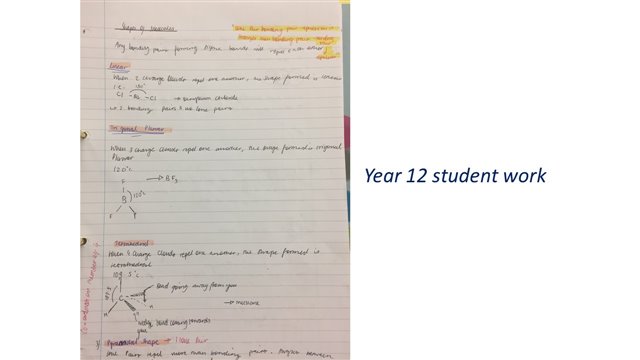 Shapes of Molecules
Any bonding pairs forming bonds will repel each other
Linear
When 2 charge clouds repel one another, the shape formed is linear
i.e. 180°
Cl - Be - Cl → beryllium chloride
2 bonding pairs & no lone pairs
Trigonal Planar
When 3 charge clouds repel one another, the shape formed is trigonal
Planar
120°c
F → BF3
B
F F
Tetrahedral
When 4 charge clouds repel one another, the shape formed is
tetrahedral
109.5°c
Bond going away from you
C
→ methane
H
bond coming towards
you
3) Pyramidal Shape → 1 Lone Pair
Lone Pairs repel more than bonding pairs. Angle between
Year 12 student work